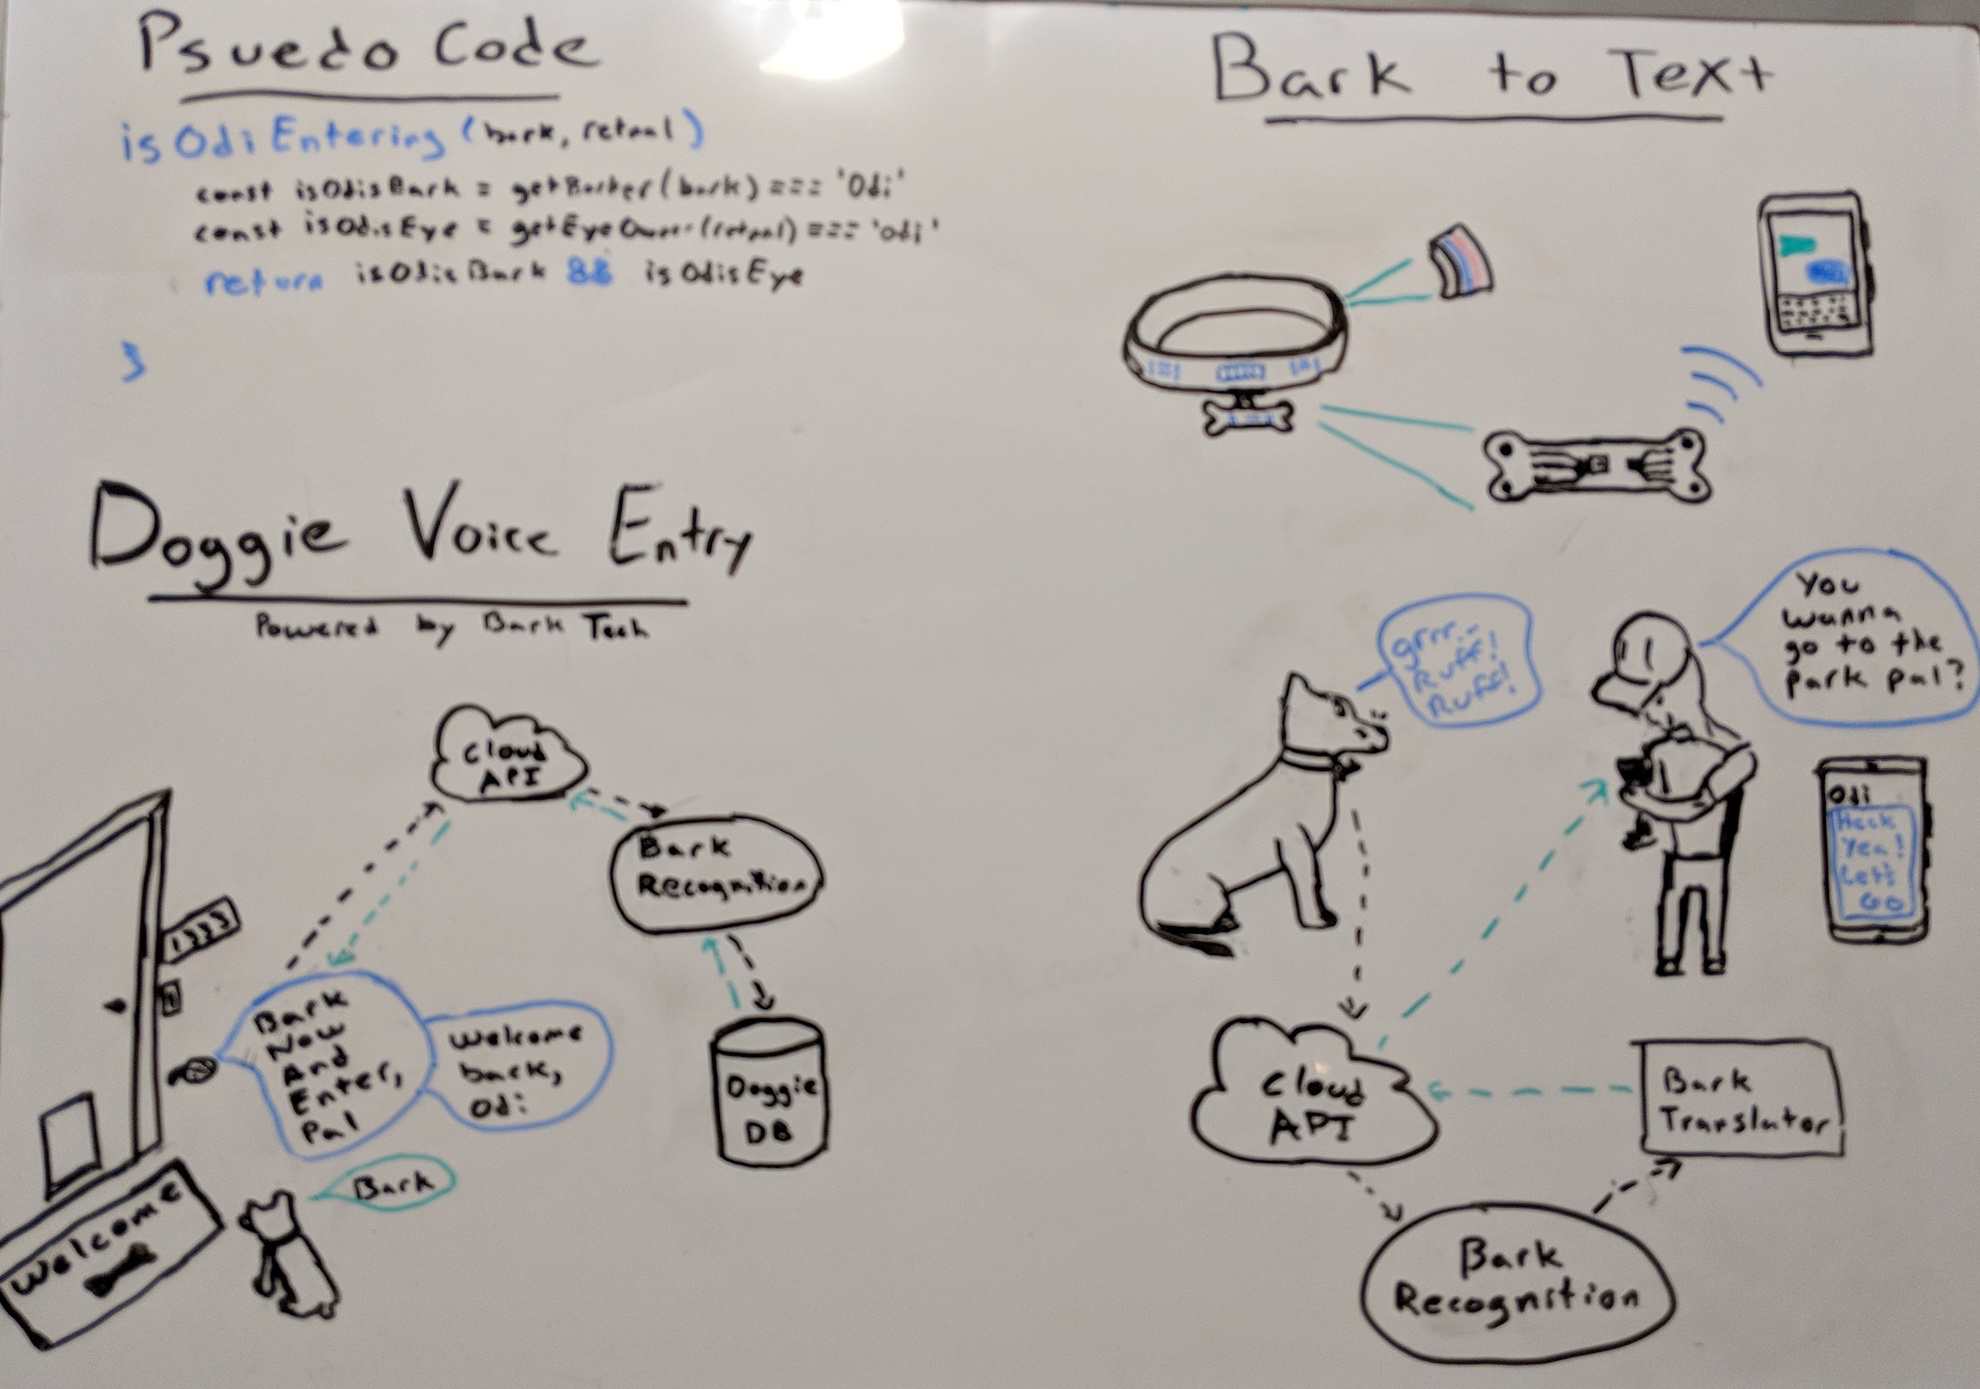 Psuedo Code
isOdiEntering (bark, retnal)
const isOdisBark = getBarker(bark) === 'Odi'
const isOdisEye = getEyeOwner(retnal) === 'odi'
return isOdisBark && isOdisEye
}
Doggie Voice Entry
Powered by Bark Tech
Cloud
API
Bark
Recognition
Doggie
DB
1333
Bark
Now
And
Enter,
Pal
Welcome
back,
Odi
Bark
Welcome
Bark to Text
grrr..
Ruff!
Ruff!
You
wanna
go to the
park pal?
Odi
Heck
Yea!
Let's
GO
Cloud
API
Bark
Translator
Bark
Recognition